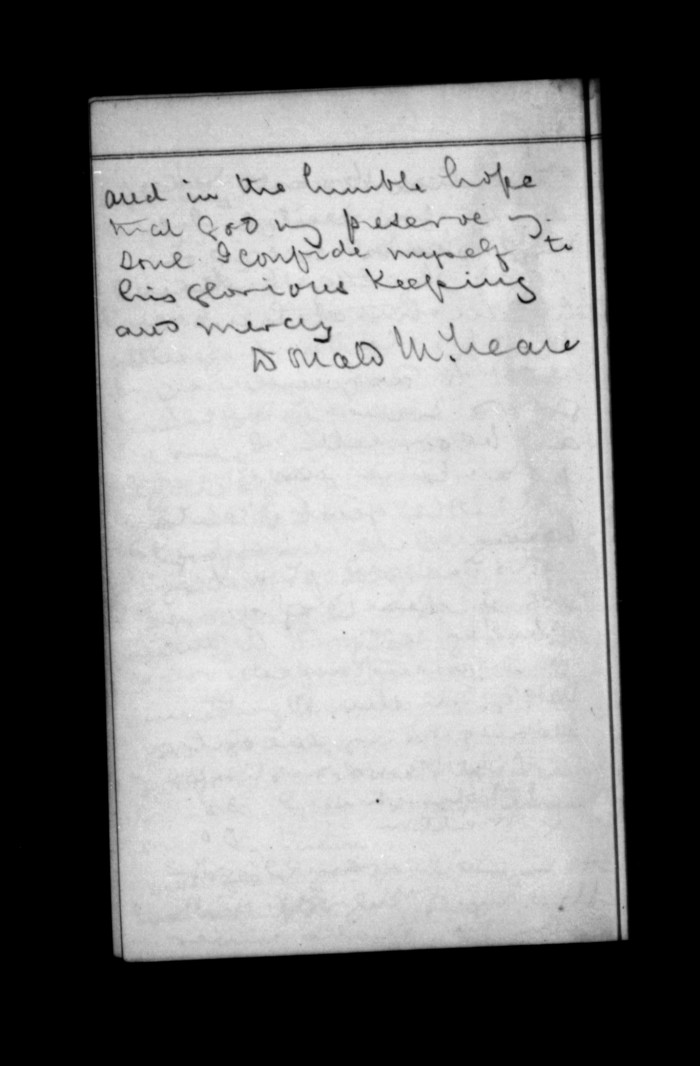 and in the humble hope
that God my preserve my
soul I confide myself to
his glorious Keeping
and mercy
Donald McLean